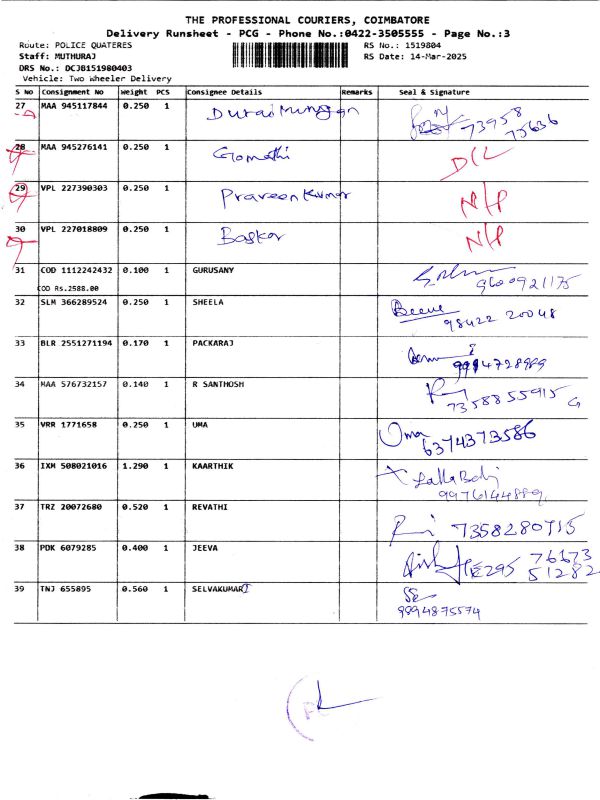 THE PROFESSIONAL COURIERS, COIMBATORE
Delivery Runsheet - PCG - Phone No.:0422-3505555 - Page No.:3
Route: POLICE QUATERES RS No.: 1519804
Staff: MUTHURAJ RS Date: 14-Mar-2025
DRS No.: DCJB151980403
Vehicle: Two Wheeler Delivery
S NO Consignment No Weight PCS Consignee Details Remarks Seal & Signature
27 MAA 945117844 0.250 1 Duraimurugan 73958
75636
28 MAA 945276141 0.250 1 Gomathi D/L
29 VPL 227390303 0.250 1 Praveen Kumar N/P
30 VPL 227018809 0.250 1 Baskar N/P
31 COD 1112242432 0.100 1 GURUSANY 9600921175
COD Rs.2588.00
32 SLM 366289524 0.250 1 SHEELA
98422 20048
33 BLR 2551271194 0.170 1 PACKARAJ
9994728989
34 MAA 576732157 0.140 1 R SANTHOSH
7358855915
35 VRR 1771658 0.250 1 UMA Uma
6374373586
36 IXM 508021016 1.290 1 KAARTHIK
9976144889
37 TRZ 20072680 0.520 1 REVATHI 7358280715
38 PDK 6079285 0.400 1 JEEVA 76673
51282
39 TNJ 655895 0.560 1 SELVAKUMARI
9894875574